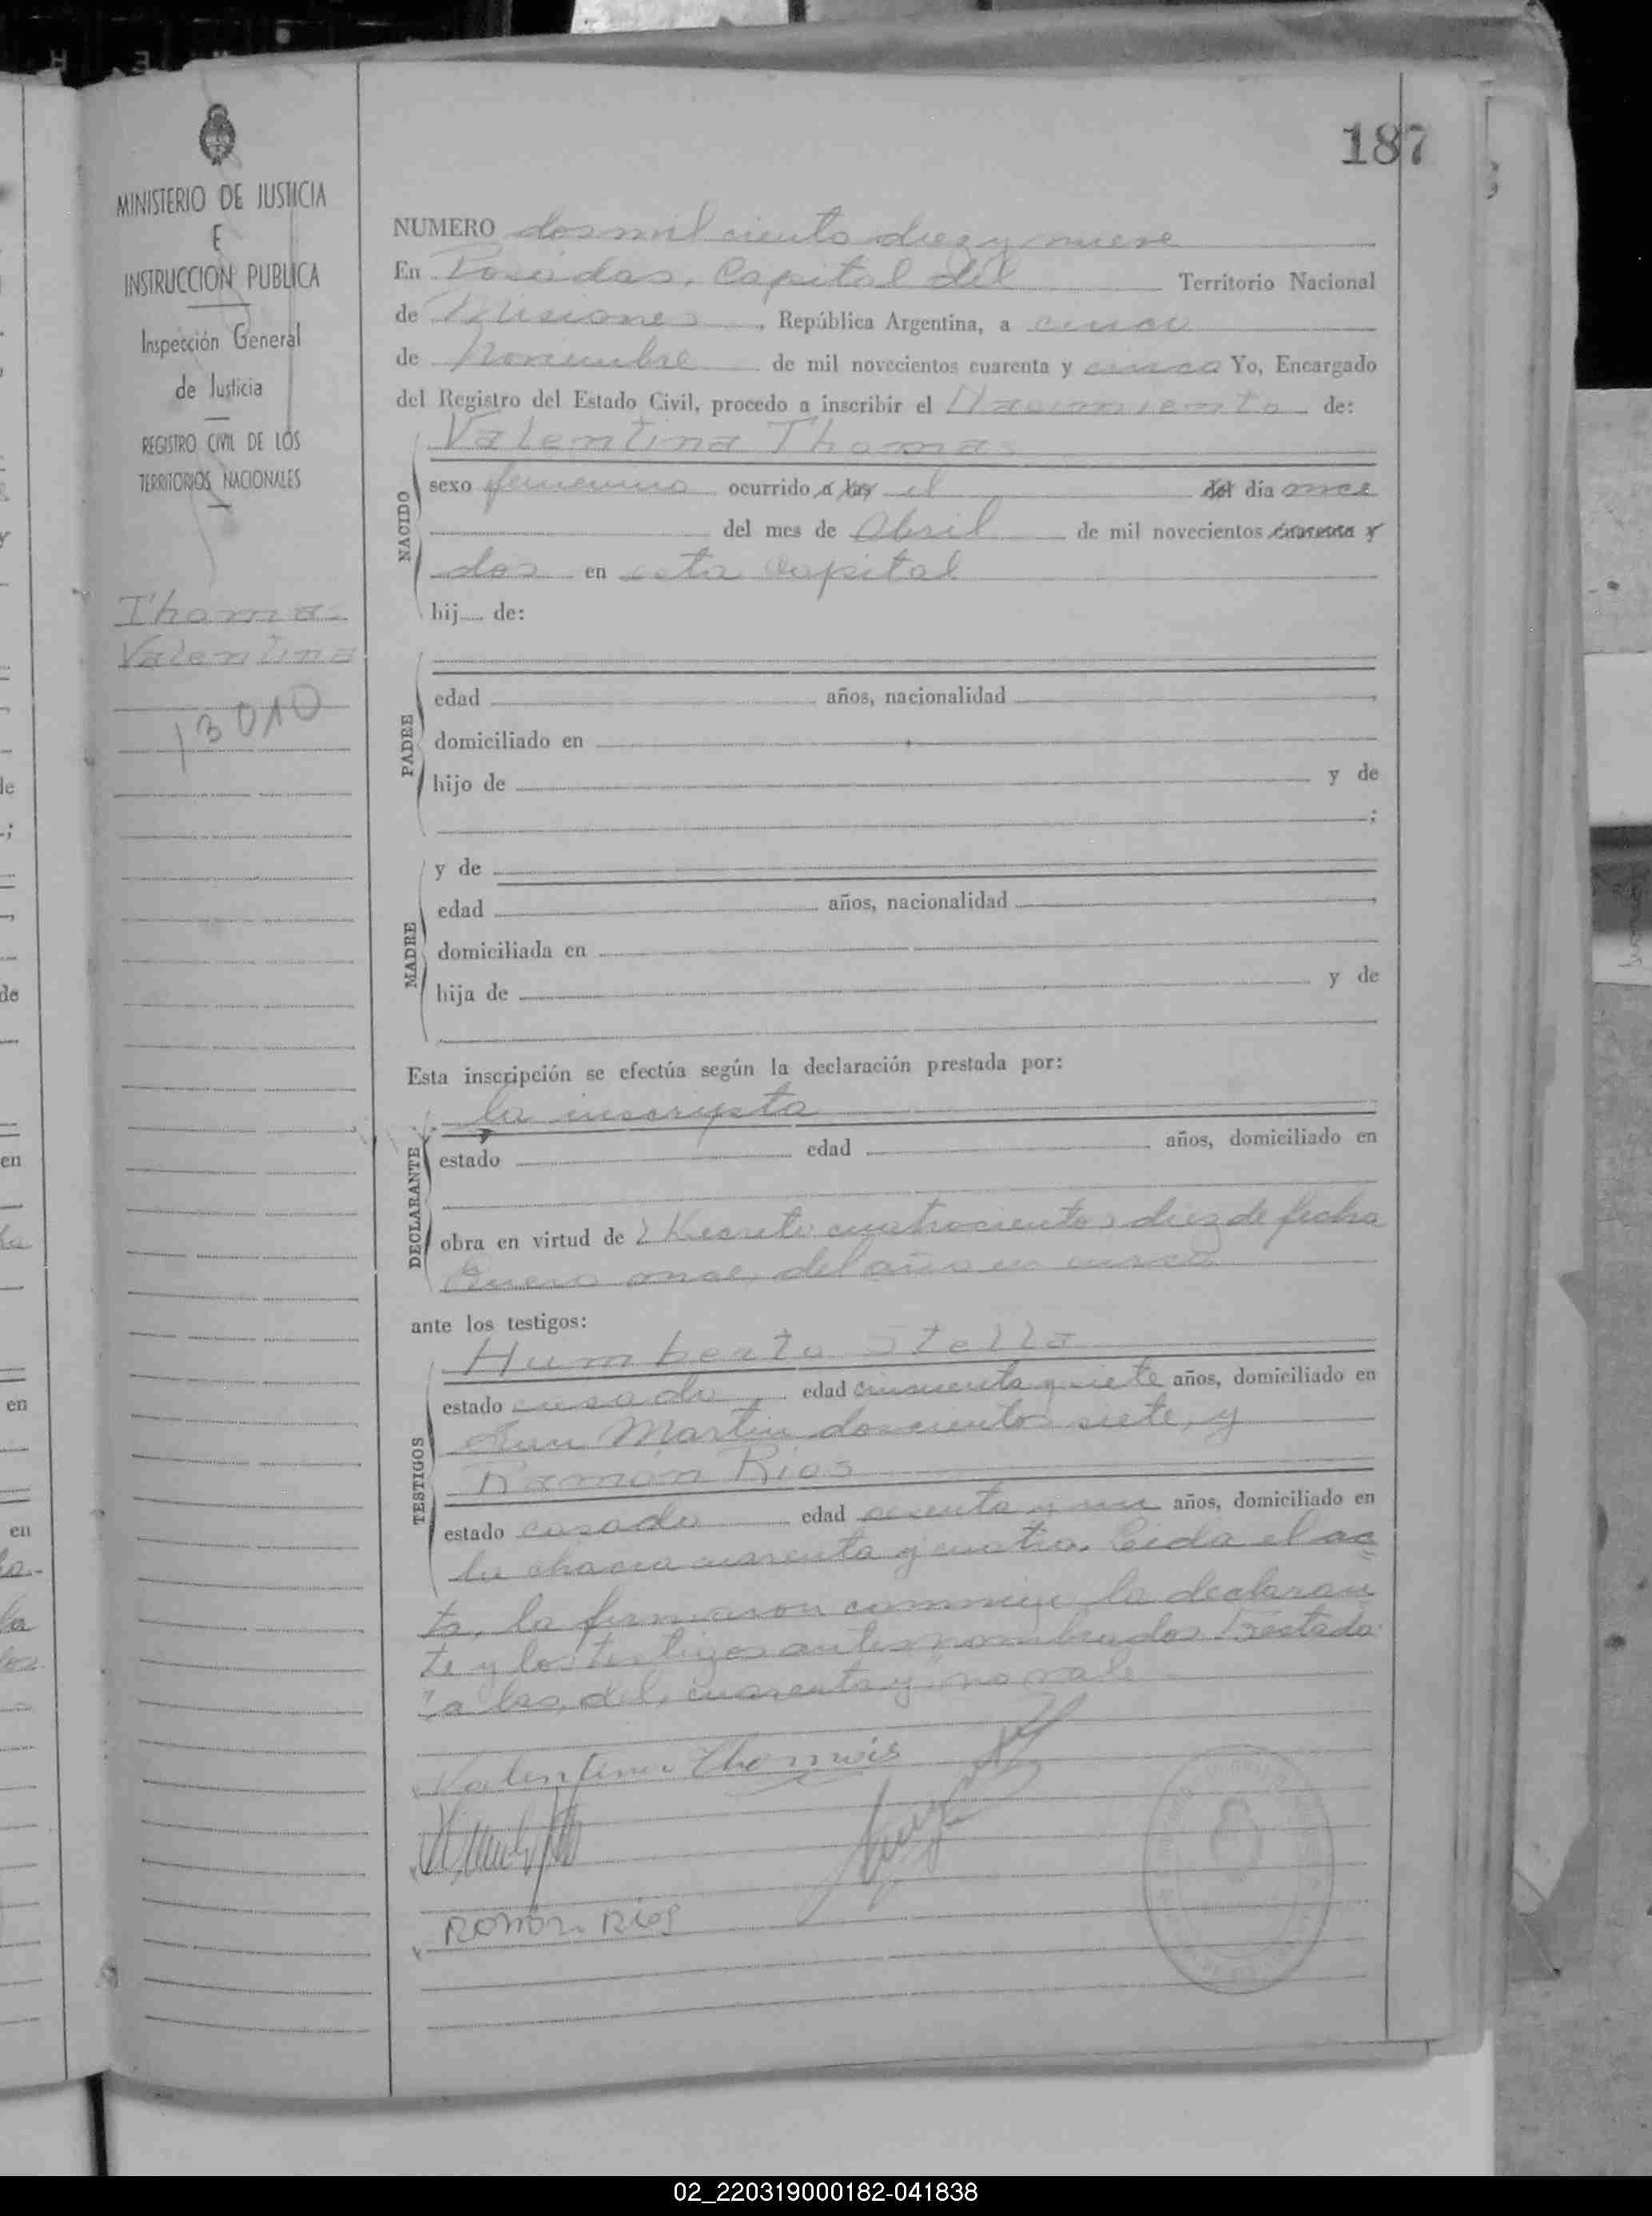 187
MINISTERIO DE JUSTICIA
E
INSTRUCCION PUBLICA
Inspección General
de Justicia
REGISTRO CIVIL DE LOS
TERRITORIOS NACIONALES
Thomas
Valentina
13010
NUMERO dos mil ciento diez y nueve
En Posadas, Capital del Territorio Nacional
de Misiones, República Argentina, a cinco
de Noviembre de mil novecientos cuarenta y cinco Yo, Encargado
del Registro del Estado Civil, procedo a inscribir el Nacimiento de:
Valentina Thomas
NACIDO
sexo femenino ocurrido a las el del día once
del mes de Abril de mil novecientos cuarenta y
dos en esta Capital
hij de:
PADRE
edad años, nacionalidad
domiciliado en
hijo de y de
;
MADRE
y de
edad años, nacionalidad
domiciliada en
hija de y de
Esta inscripción se efectúa según la declaración prestada por:
la inscripta
DECLARANTE
estado edad años, domiciliado en
obra en virtud de Decreto cuatrocientos diez de fecha
Enero once, del año en curso
ante los testigos:
TESTIGOS
Humberto Stella
estado casado edad cincuenta y siete años, domiciliado en
San Martin doscientos siete, y
Ramón Rios
estado casado edad y un años, domiciliado en
la chacra cuarenta y cuatro. Leida el ac
ta, la firmaron conmigo la declaran
te y los testigos antes nombrados. Testado
"a las, del, cuarenta y" no vale
Valentina Thomas
Ramón Rios
02_220319000182-041838